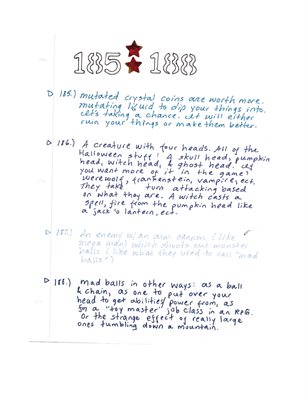 185 188
185.) mutated crystal coins are worth more.
mutating liquid to dip your things into.
It's taking a chance. It will either
ruin your things or make them better.
186.) A creature with four heads. All of the
Halloween stuff! A skull head, pumpkin
head, witch head, & ghost head. If
you want more of it in the game:
werewolf, frankenstein, vampire, ect.
They take turn attacking based
on what they are. A witch casts a
spell, fire from the pumpkin head like
a jack'o lantern, ect.
187.) An enemy w/ an arm cannon (like
mega man) which shoots out monster
balls (like what they used to call "mad
balls")
188.) mad balls in other ways: as a ball
& chain, as one to put over your
head to get abilities/power from, as
a "toy master" job class in an RPG.
Or the strange effect of really large
ones tumbling down a mountain.